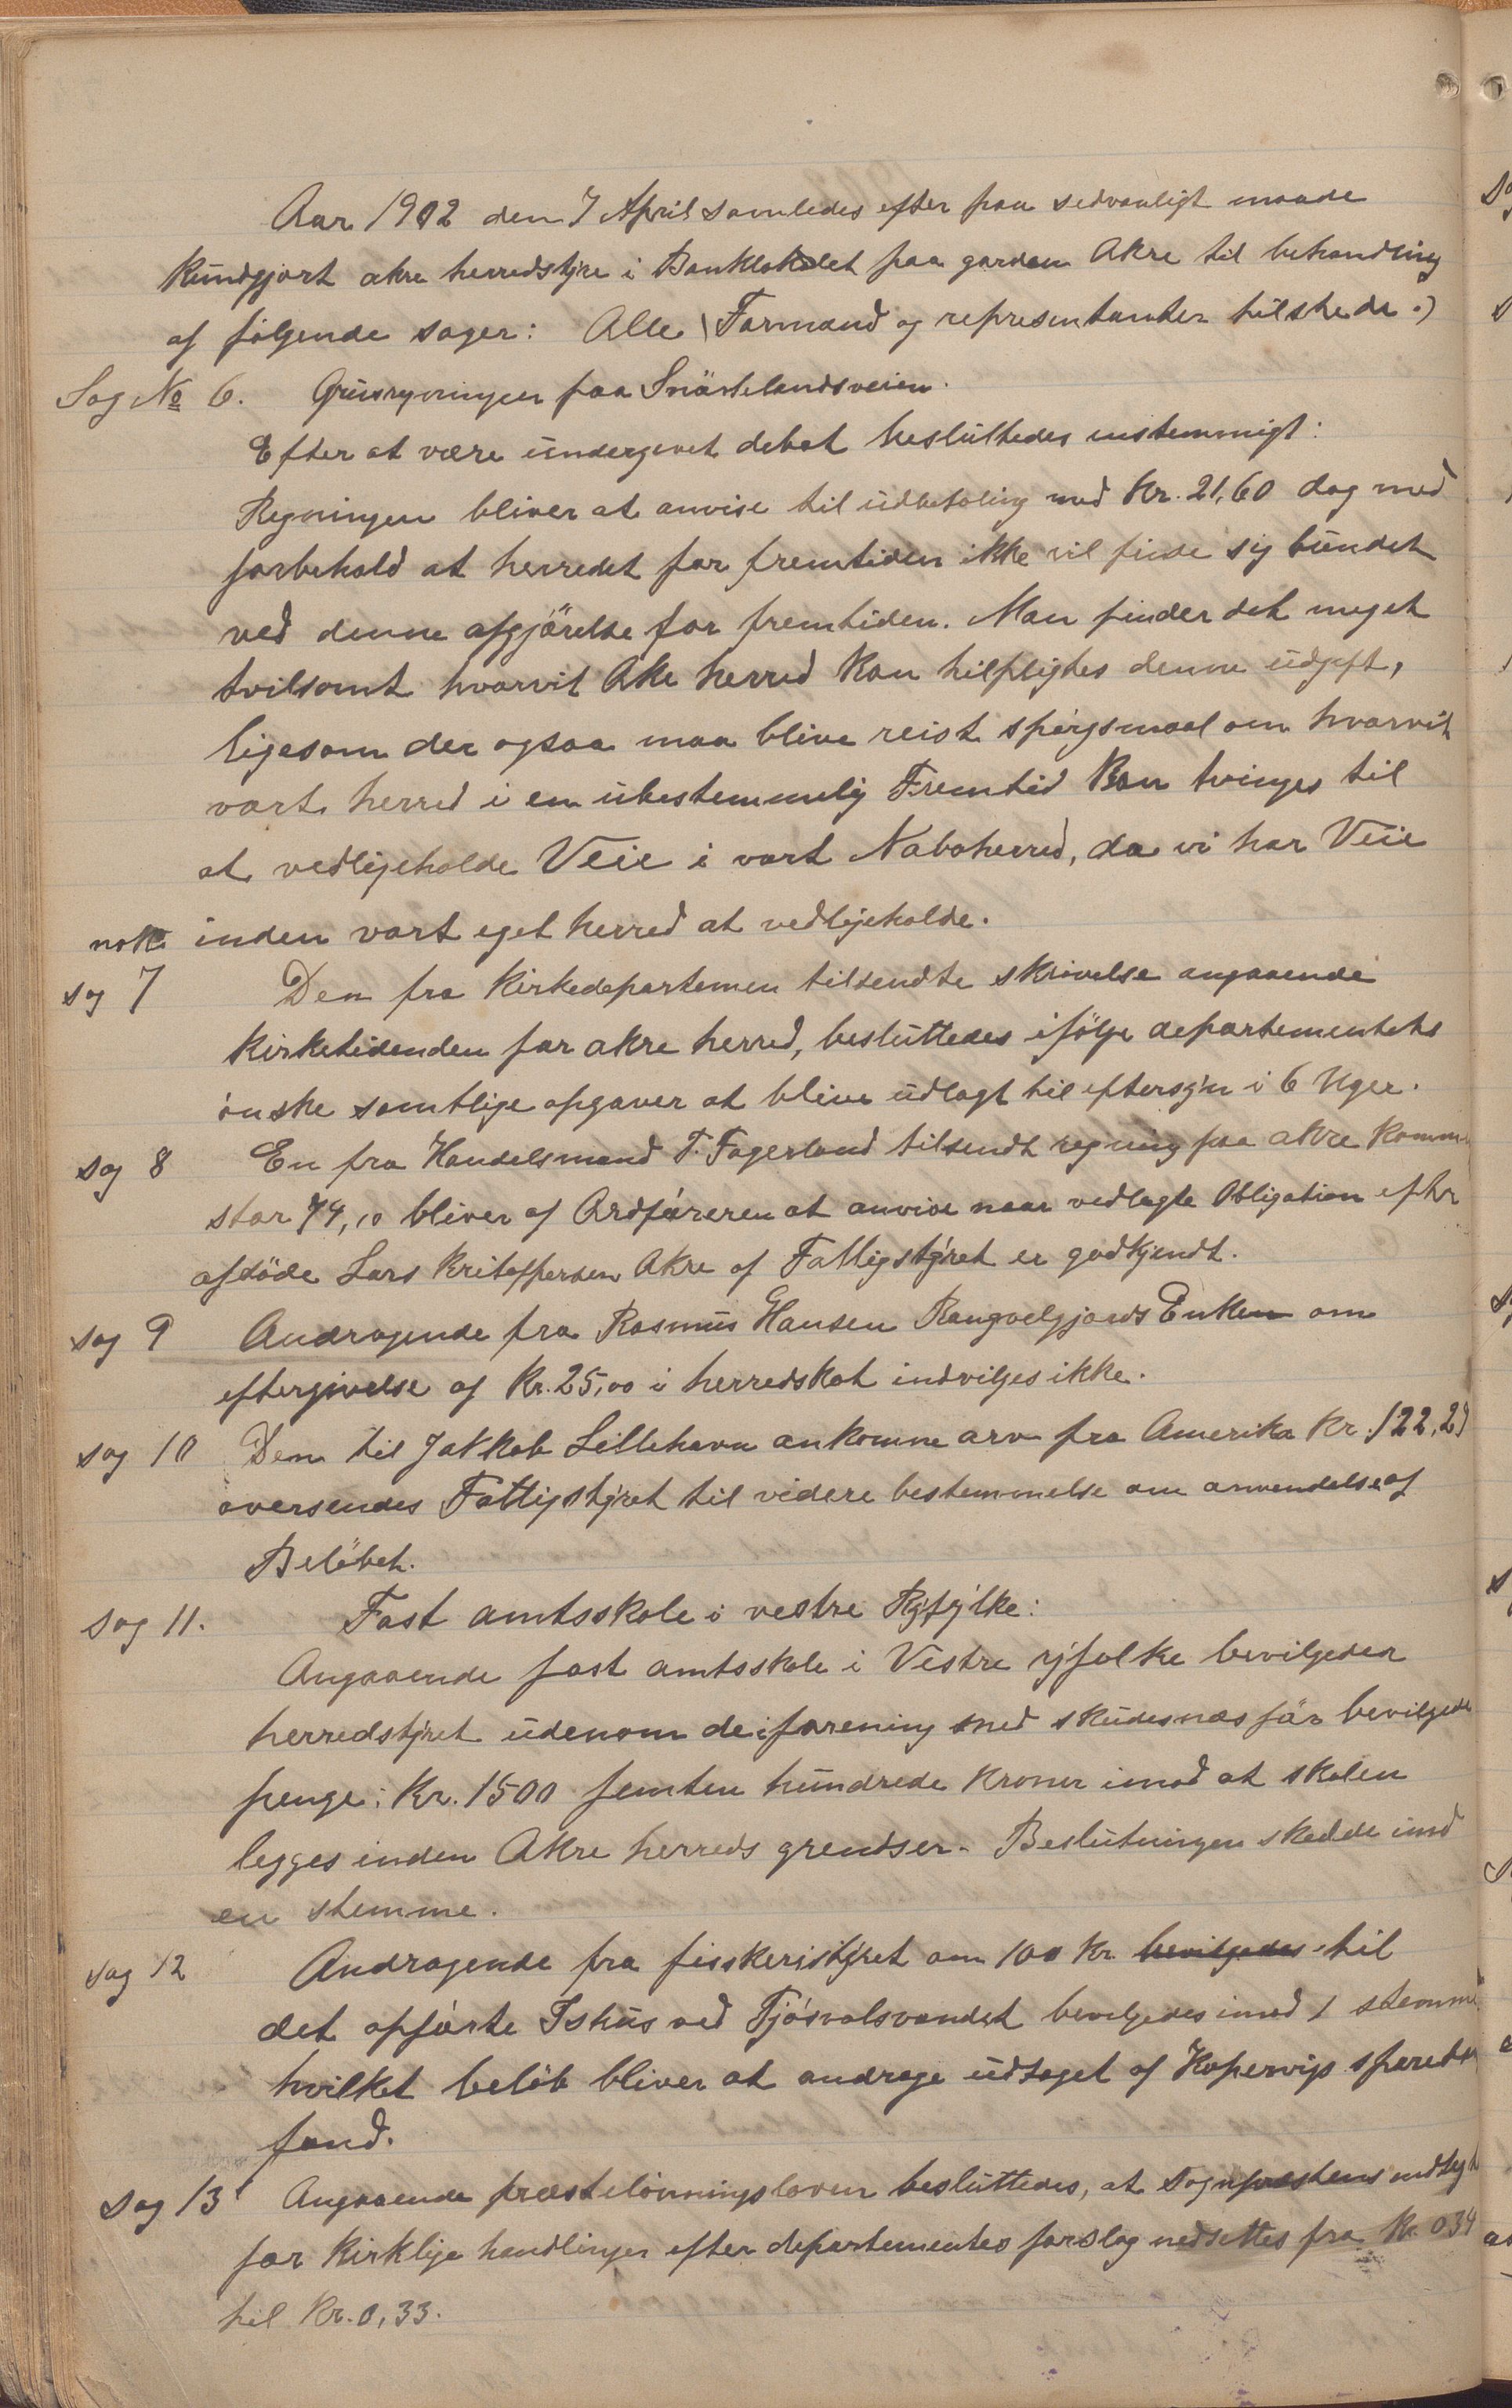 Aar 1902 den 7 April samledes efter paa sedvanligt maade
kundgjort akre herredstyre i Banklokalet paa garden Akre til behandling
af følgende sager: Alle (Formænd og representanter tilstede.)
Sag No 6. Grusregningen paa Snörtelandsveien.
Efter at være undergivet debat besluttedes enstemmigt:
Regningen bliver at anvise til udbetaling med Kr. 21,60 dog med
forbehold at herredet for fremtiden ikke vil finde sig bundet
ved denne afgjörelse for fremtiden. Man finder det meget
tvilsomt hvorvit Akre herred kan tilpligtes denne udgift,
ligesom der ogsaa maa blive reist spörgsmaal om hvorvit
vort herred i en ubestemmelig Fremtid kan tvinges til
at vedligeholde Veie i vort Naboherred, da vi har Veie
nok inden vort eget herred at vedligeholde.
sag 7 Den fra Kirkedepartemen tilsendte skrivelse angaaende
kirketidenden for akre herred, besluttedes ifölge departementets
önske samtlige opgaver at blive udlagt til eftersyn i 6 Uger.
sag 8 En fra Handelsmand T. Fagerland tilsendt regning paa akre Komm
stor 74,10 bliver af Ordföreren at anvise naar vedlagte Obligation efter
afdöde Lars Kritoffersen Akre af Fattigstyret er godkjendt.
sag 9 Andragende fra Rasmus Hansen Rangvelgjords Enken om
eftergivelse af Kr. 25,00 i herredskat indvilges ikke.
sag 10 Den til Jakkob Lillehavn ankomne arv fra Amerika Kr. 122,29
oversendes Fattigstyret til videre bestemmelse om anvendelse af
Belöbet.
sag 11. Fast amtsskole i vestre Ryfylke:
Angaaende fast amtsskole i Vestre ryfølke bevilgeder
herredstyret udenom de i forening med skudesnæs för bevilgede
penge: Kr. 1500 femten hundrede Kroner imod at skolen
legges inden Akre herreds grendser. Beslutningen skedde imod
en stemme.
sag 12 Andragende fra fisskeristyret om 100 Kr. bevilgedes til
det opförte Ishus ved Tjösvolsvandet bevilgedes imod 1 stemme
hvilket belöb bliver at andrage udtaget af Kopervigs sparebank
fond.
sag 13 Angaaende præstelönningsloven besluttedes, at Sognpræstens indtegt
for Kirklige handlinger efter departementes forslag nedsettes fra Kr. 0,34
til Kr. 0,33.